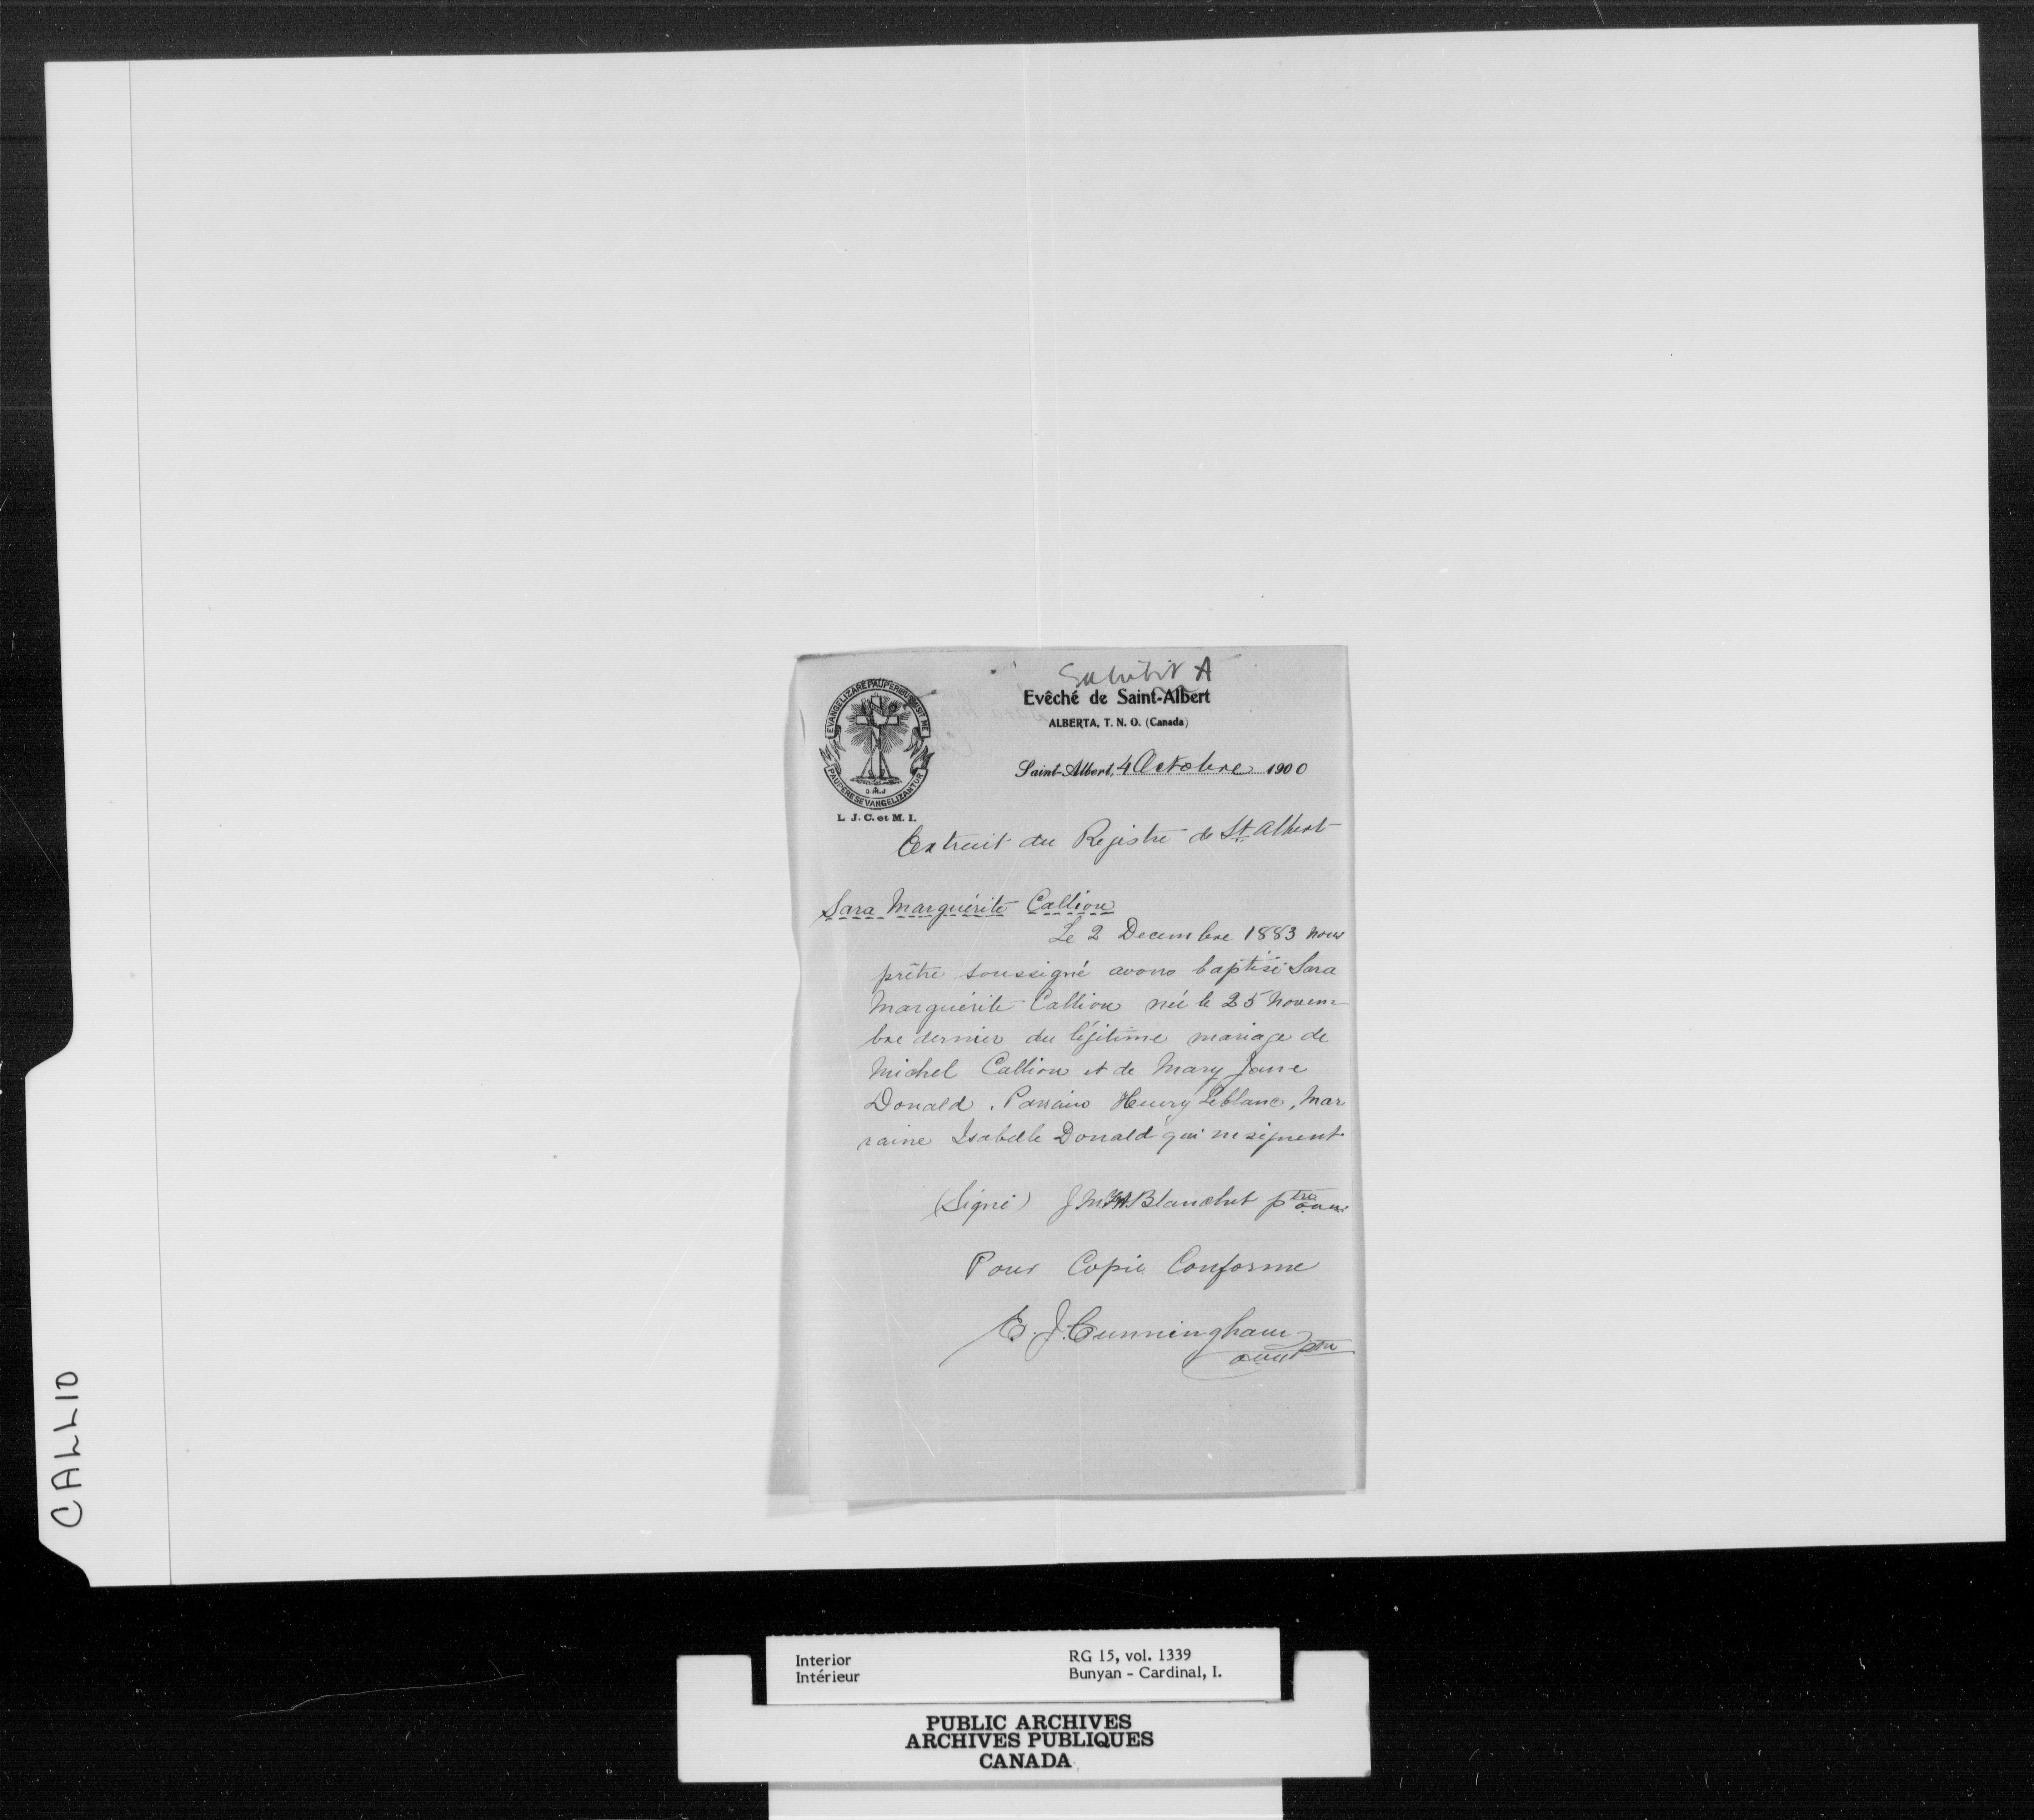 Exhibit A
EVANGELIZARE PAUPERIBUS MISIT ME
PAUPERES EVANGELIZANTUR
O.M.J
L. J. C. et M. I.
Evêché de Saint-Albert
ALBERTA, T. N. O. (Canada)
Saint-Albert, 4 Octobre 1900
Extrait du Registre de St. Albert
Sara Marguérite Callion
Le 2 Decembre 1883 nous
prêtre soussigné avons baptisé Sara
Marguérite Callion née le 25 Novem-
bre dernier du légitime mariage de
Michel Callion et de Mary Jane
Donald. Parrain Henry Leblanc, Mar
raine Isabelle Donald qui ne signent
(Signé) J M Blanchet ptre o.m.i
Pour Copie Conforme
E. J. Cunningham
o.m.i ptre
CALLIO
Interior
Intérieur
RG 15, vol. 1339
Bunyan - Cardinal, I.
PUBLIC ARCHIVES
ARCHIVES PUBLIQUES
CANADA